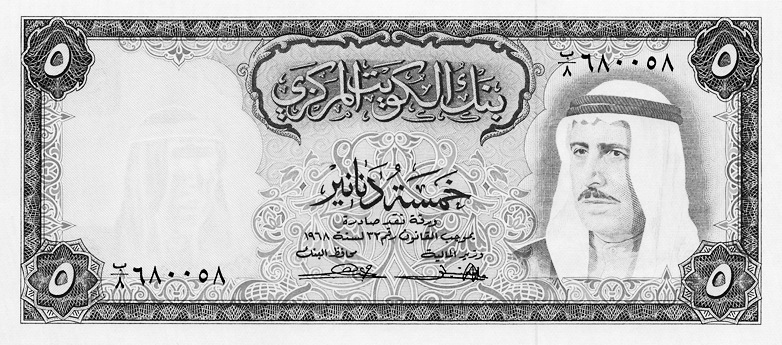 ٥
ب/٨ ٦٨٠٠٥٨
٥
بنك الكويت المركزي
خمسة دنانير
ورقة نقد صادرة
بموجب القانون رقم ٣٢ لسنة ١٩٦٨
وزير المالية
محافظ البنك
ب/٨ ٦٨٠٠٥٨
٥
٥